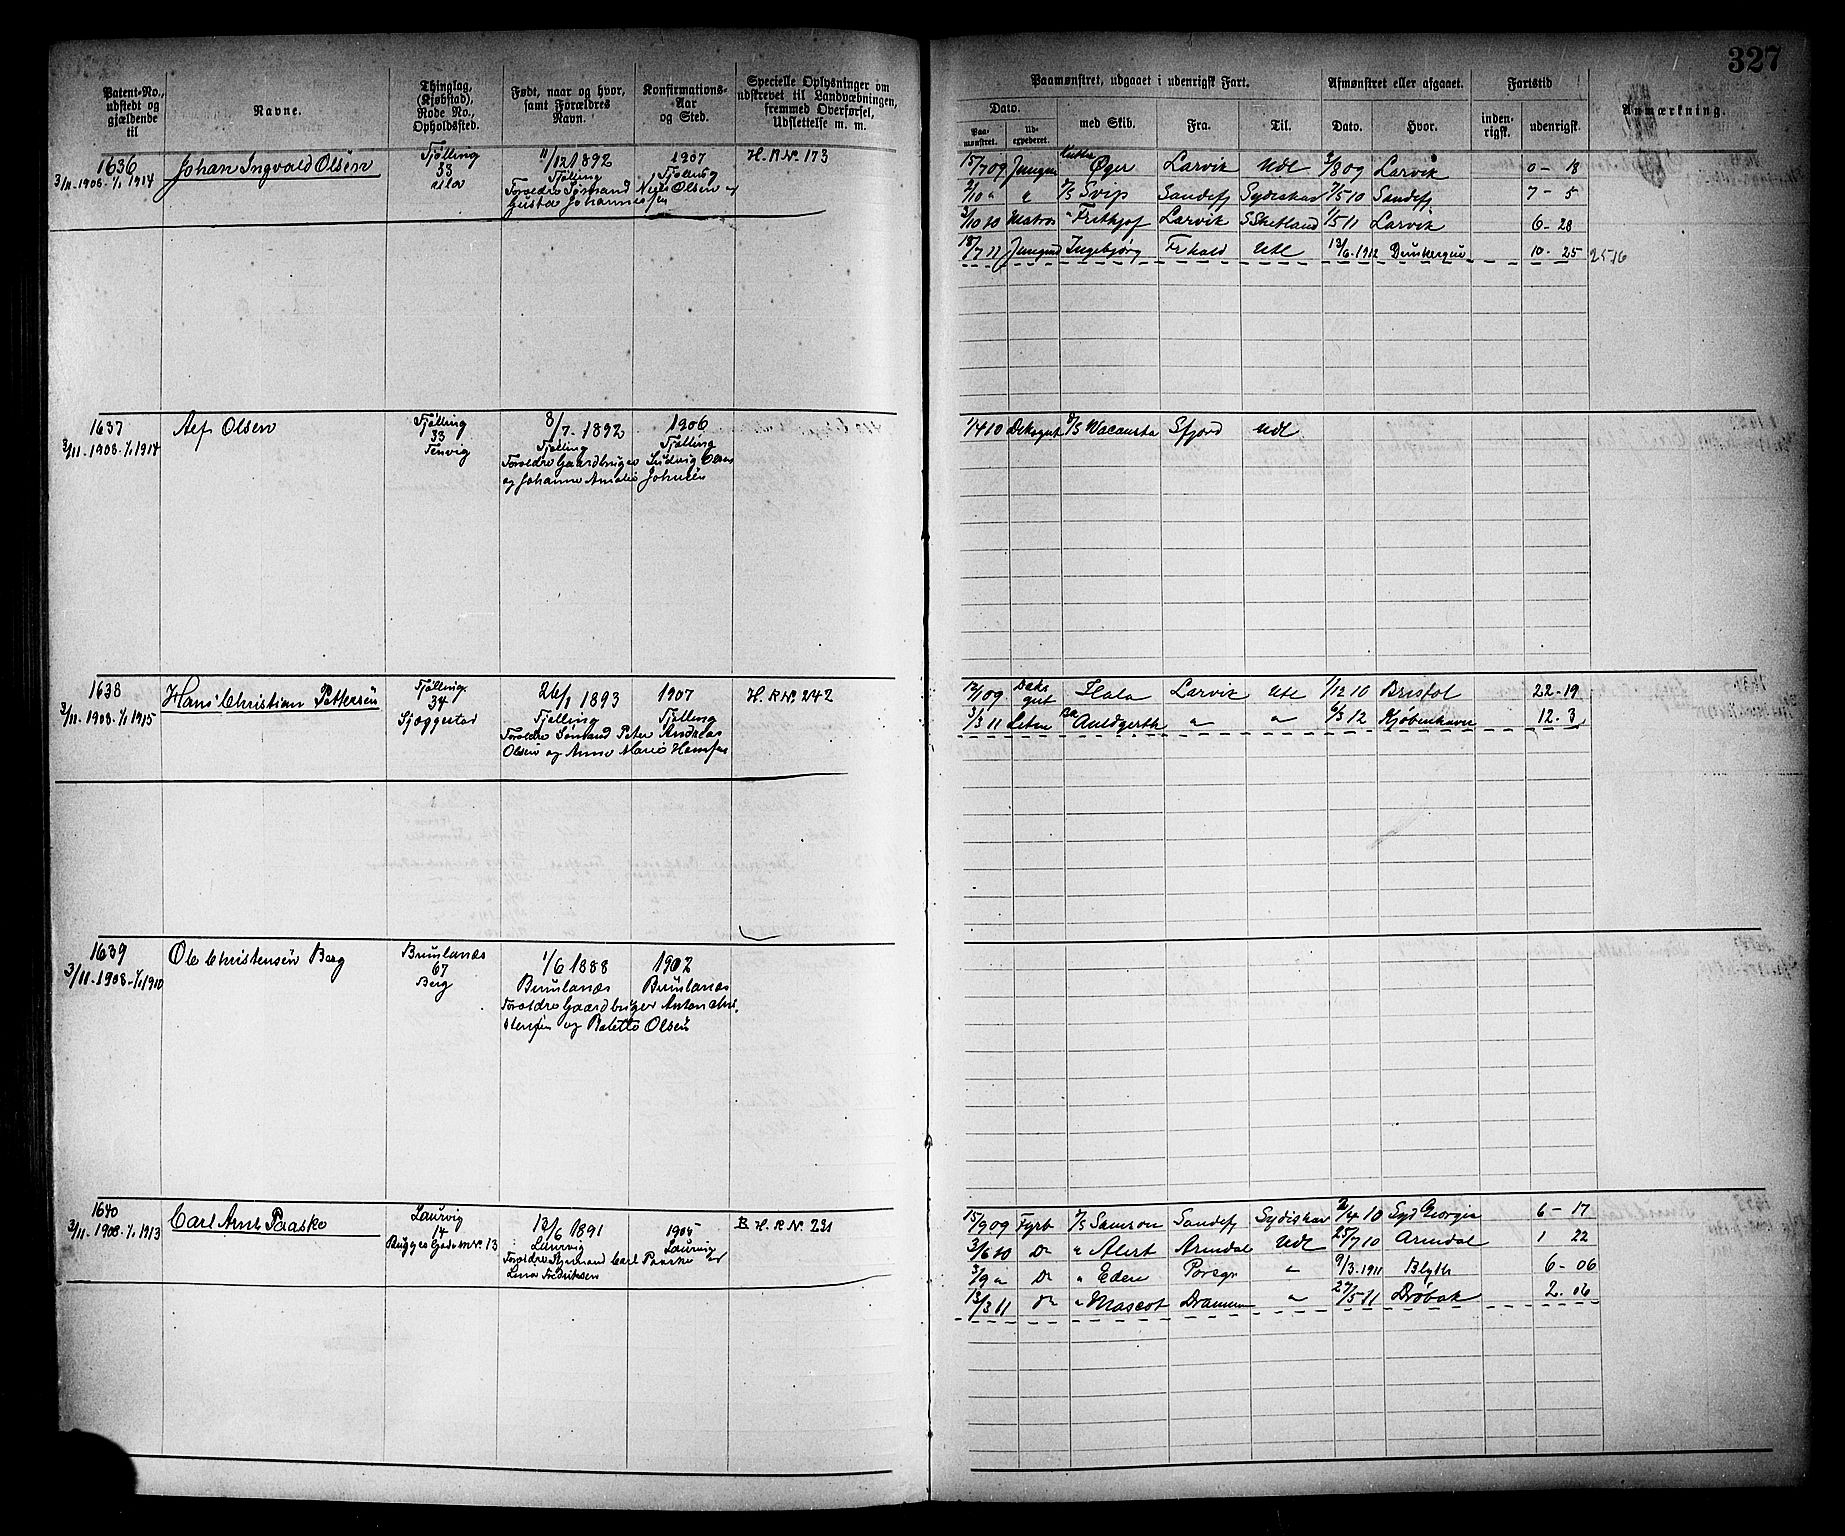 327
Patent-No., udstedt og gjældende til
Navne.
Thinglag, (Kjøbstad), Rode No., Opholdssted.
Født, naar og hvor, samt Forældres Navn.
Konfirmations-Aar og Sted.
Specielle Oplysninger om udskrevet til Landvæbningen, fremmed Overførsel, Udslettelse m. m.
Paamønstret, udgaaet i udenrigsk Fart.
Afmønstret eller afgaaet.
Fartstid
Anmærkning.
Dato.
Paa-mønstret.
Ud-expederet.
med Skib.
Fra.
Til.
Dato.
Hvor.
inden-rigsk.
udenrigsk.
1636
3/11-1908-1/1 1914
Johan Ingvald Olsen
Tjølling
33
Ula
11/12 1892
Tjølling
1907
Tjølling
Forældre Sømand Niels Olsen og
Gustava Johannesen
H. R. Nr. 173
15/7 09 Jungm Kutter Øger Larvik Udl 3/8 09 Larvik 0 - 18
2/10 " " D/S Svip Sandefj Sydishav 7/5 10 Sandefj 7 - 5
3/10 10 Matros " Frithjof Larvik S Shetland 1/5 11 Larvik 6 - 28
18/7 11 Jungmd Ingebjørg Frhald Utl 13/6-1912 Dunkerque 10 - 25 2516
1637
3/11-1908-1/1 1914
Alf Olsen
Tjølling
33
Tenvig
8/7-1892
Tjølling
1906
Tjølling
Forældre Gaardbruger Ludvig Olsen
og Johanne Amalie Johnsen
1/4 10 Deksgut D/S Wacousta Sfjord Udl
1638
3/11-1908-1/1 1915
Hans Christian Pettersen
Tjølling
34
Sjæggestad
26/1 1893
Tjølling
1907
Tjølling
Forældre Sømand Peter Andreas
Olsen og Anne Marie Hansen
H. R. Nr. 242
12/1 09 Deksgut Ilala Larvik Utl 1/12 10 Bristol 22-19
3/3 11 Letm Bk Auldgerth " " 6/3 12 Kjøbenhavn 12-3
1639
3/11-1908-1/1 1910
Ole Christensen Berg
Brunlanæs
67
Berg
1/6 1888
Brunlanæs
1902
Brunlanæs
Forældre Gaardbruger Anton Chri-
stensen og Olsen
1640
3/11-1908-1/1 1913
Carl Arnt Paaske
Laurvig
14
Bugges Gade m Nr. 13
12/6 1891
Laurvig
1905
Laurvig
Forældre Carl Paaske og
Lina Fredriksen
B H. R. N. 231
15/9 09 Fyrb D/S Samson Sandefj Sydishav 2/4 10 Syd Georgia 6 - 17
3/6 10 Do " Alert Arendal Udl 25/7 10 Arendal 1 22
3/9 " Do " Eden Porsgr " 9/3-1911 Blyth 6 - 06
13/3 11 do " Mascot Drammen " 27/5 11 Drøbak 2 - 06